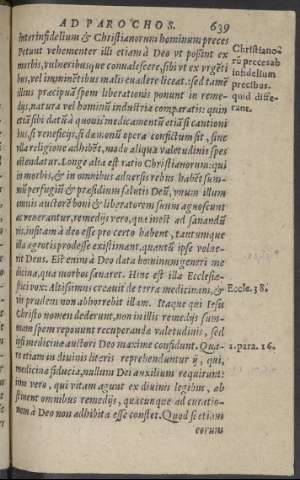 AD PAROCHOS. 639
Interinfidelium & Christianorum hominum preces
Petunt vehementer illi etiam à Deo vt possint ex
morbis, vulneribusque conualescere, sibi vt ex vrgēti
bus, vel imminētibus malis euadere liceat: sed tamē
illius præcipuā spem liberationis ponunt in reme-
dijs, natura vel hominū industria comparatis: quin
etiā sibi datū à quouis medicamentū etiā si cantioni
bus, si veneficijs, si dæmonū opera confictum sit, sine
vlla religione adhibēt, modo aliqua valetudinis spes
ostendatur. Longe alia est ratio Christianorum: qui
in morbis, & in omnibus aduersis rebus habēt sum-
mū perfugiū & præsidium salutis Deū, vnum illum
omnis auctorē boni & liberatorem suum agnoscunt
ac venerantur, remedijs vero, quæ inest ad sanandū
vis, insitam à deo esse pro certo habent, tantumque
illa ægrotis prodesse existimant, quantū ipse volue-
rit Deus. Est enim à Deo data hominum generi me
dicina, qua morbos sanaret. Hinc est illa Ecclesia-
stici vox: Altissimus creauit de terra medicinam, &
vir prudens non abhorrebit illam. Itaque qui Iesu
Christo nomen dederunt, non in illis remedijs sum-
mam spem reponunt recuperandæ valetudinis, sed
ipsi medicinæ auctori Deo maxime confidunt. Qua-
re etiam in diuinis literis reprehenduntur ij, qui,
medicinæ fiducia, nullum Dei auxilium requirunt:
imo vero, qui vitam agunt ex diuinis legibus, ab
stinent omnibus remedijs, quæcunque ad curatio-
nem à Deo non adhibita esse constet. Quod si etiam
eorum
Christianoū
rū preces ab
infidelium
precibus.
quid diffe-
rant.
Eccle. 38.
2. para. 16.